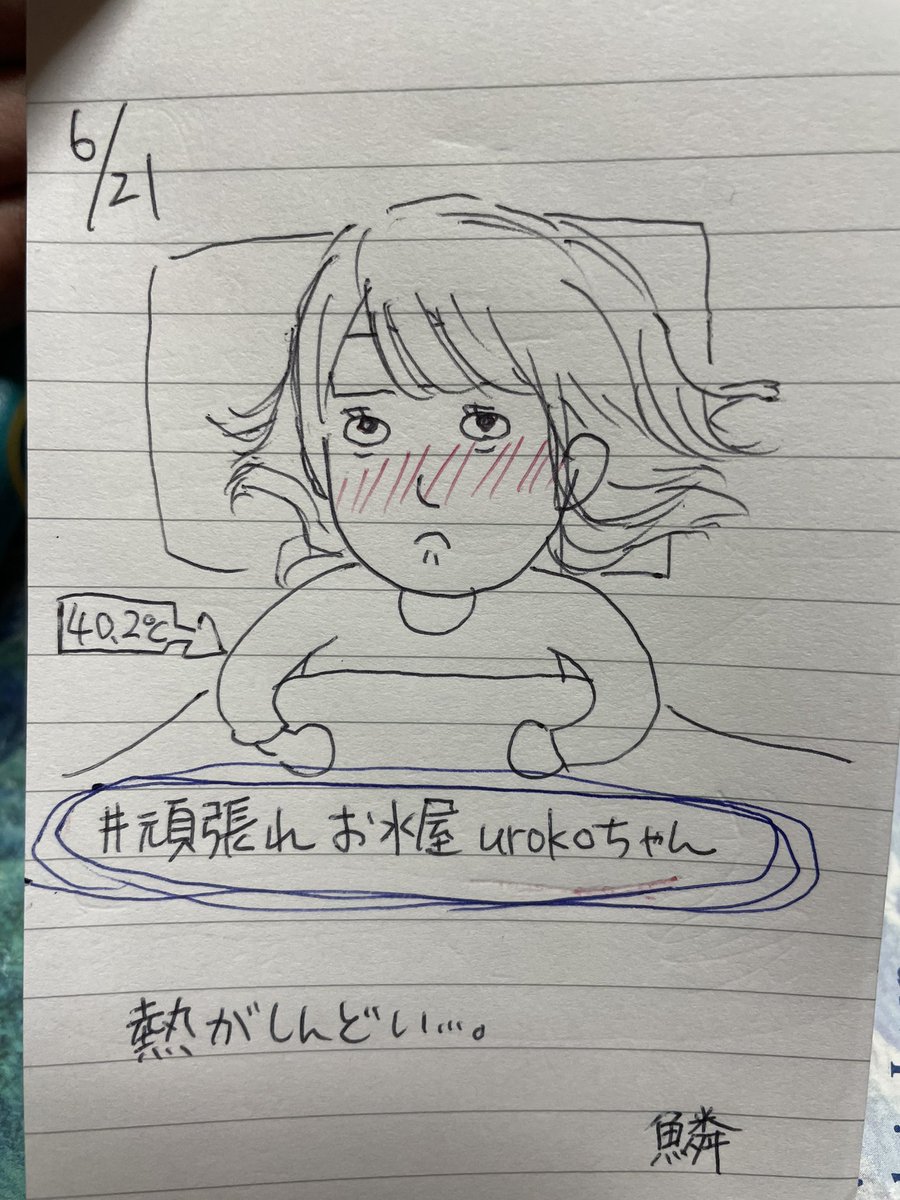 6/21
40.2℃
#頑張れお水屋urokoちゃん
熱がしんどい…。
鱗